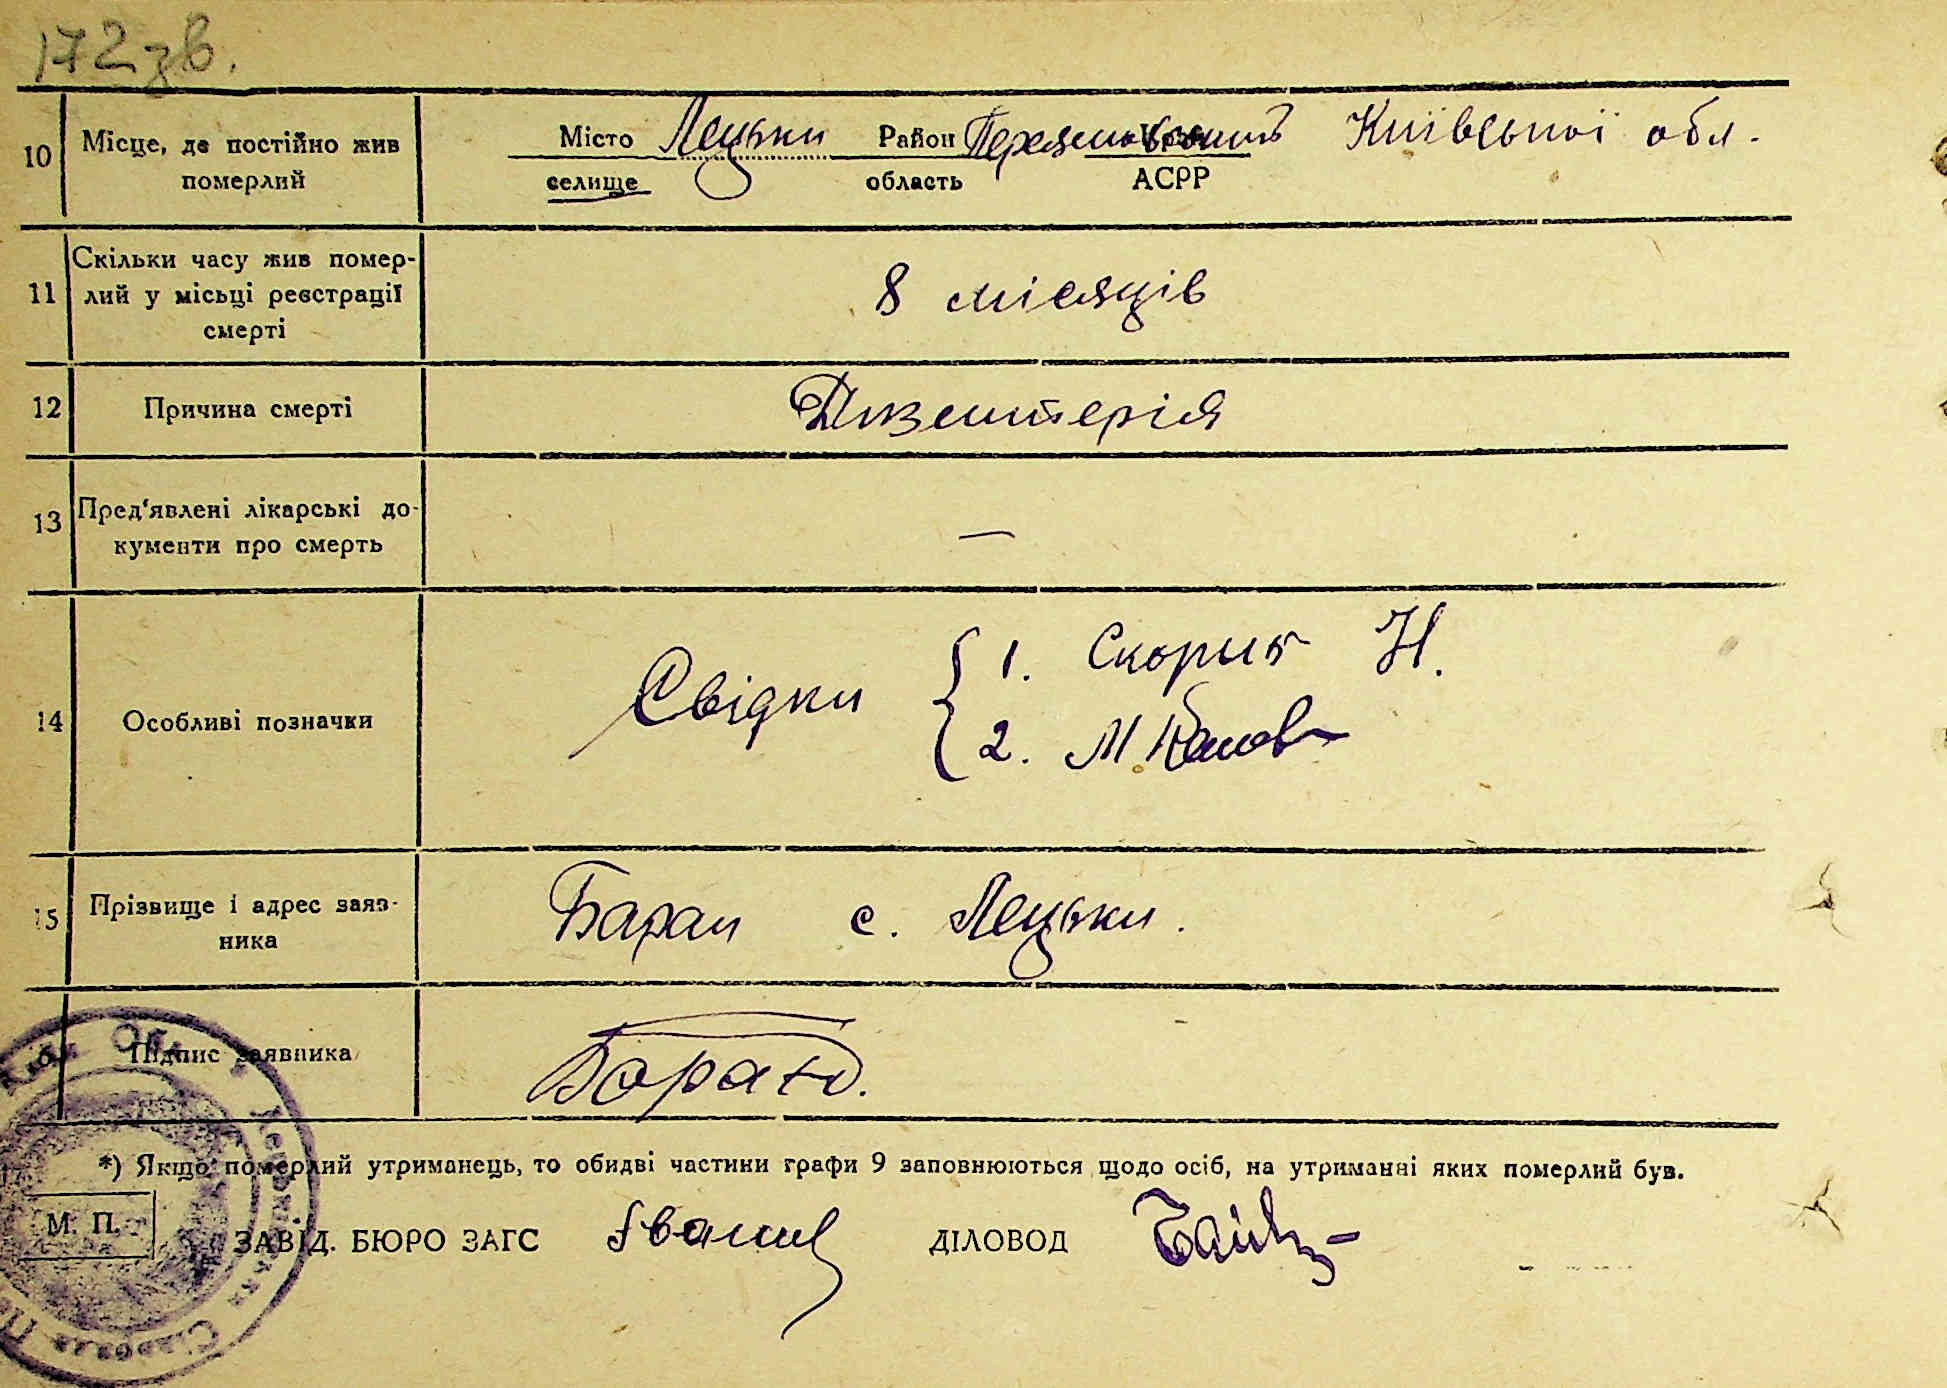 172 зв.
10 Місце, де постійно жив померлий
Місто Лецьки Район Переяславський Київської обл.
селище область АСРР
11 Скільки часу жив помер-
лий у місьці реєстрації
смерті
8 місяців
12 Причина смерті Дизентерія
13 Пред'явлені лікарські до-
кументи про смерть
—
14 Особливі позначки
Свідки { 1. Скорик Н.
2. М.
15 Прізвище і адрес заяв-
ника
Баран с. Лецьки.
Підпис заявника
*) Якщо померлий утриманець, то обидві частини графи 9 заповнюються щодо осіб, на утриманні яких померлий був.
М. П.
ЗАВІД. БЮРО ЗАГС ДІЛОВОД